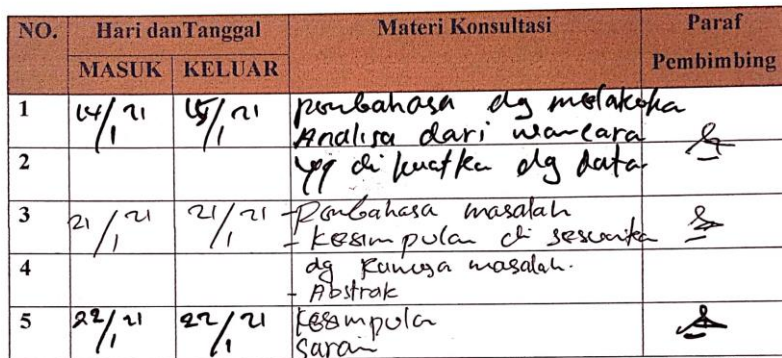 NO. Hari danTanggal Materi Konsultasi Paraf
MASUK KELUAR Pembimbing
1 14/1 21 15/1 21 pembahasa dg melakuka
Analisa dari wancara
2 yg di kuatka dg data
3 21/1 21 21/1 21 - Pembahasa masalah
- Kesimpulan di sesuaika
4 dg Rumusa masalah.
- Abstrak
5 22/1 21 22/1 21 Kesimpula
Saran